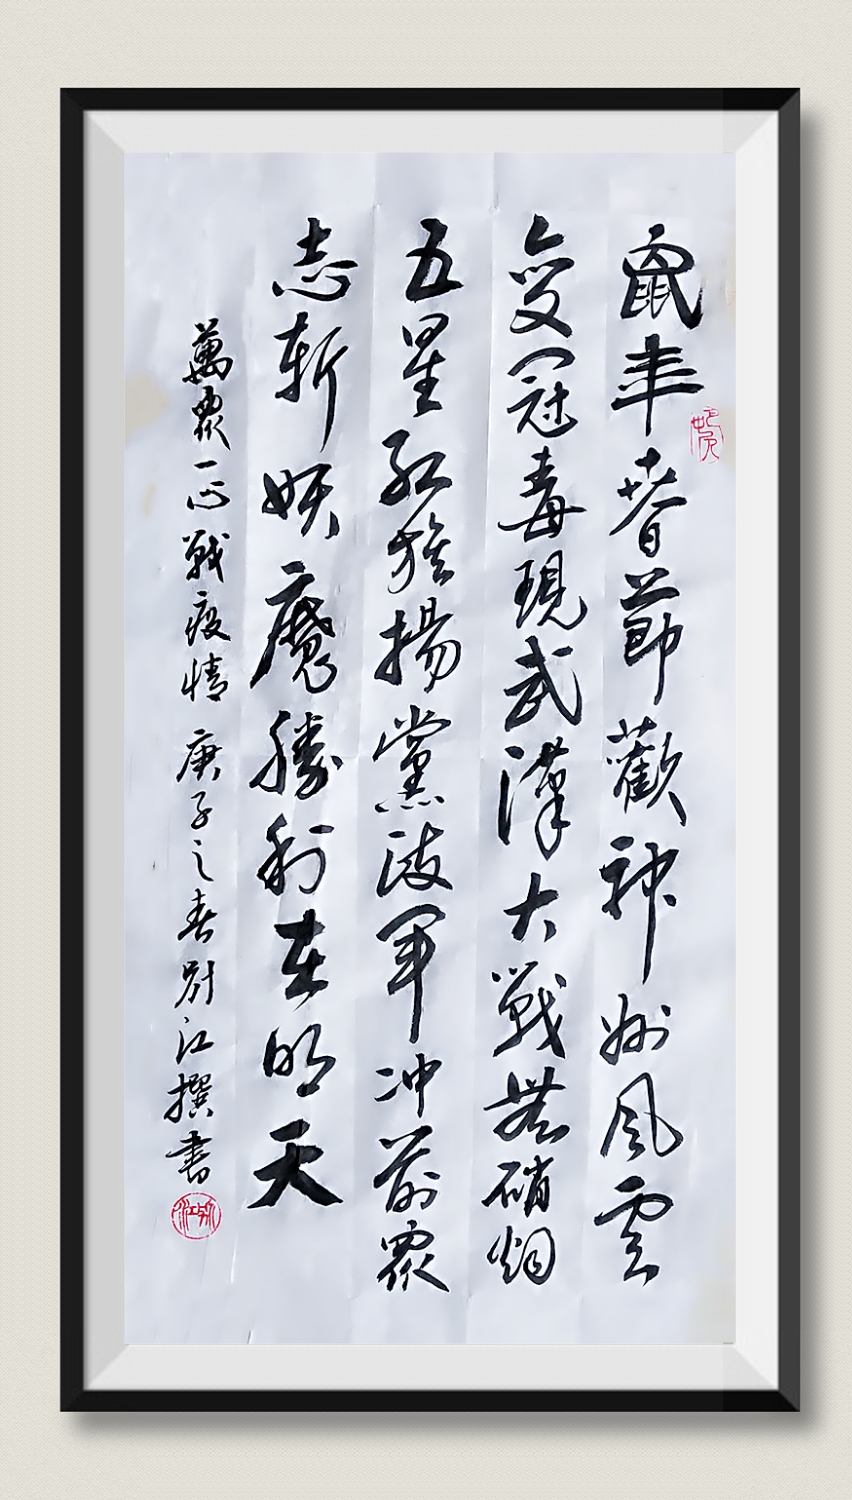 鼠年春節歡神州風雲
變冠毒現武漢大戰無硝烟
五星紅旗揚黨政軍冲前眾
志斬妖魔勝利在明天
萬眾一心戰疫情 庚子之春江撰書